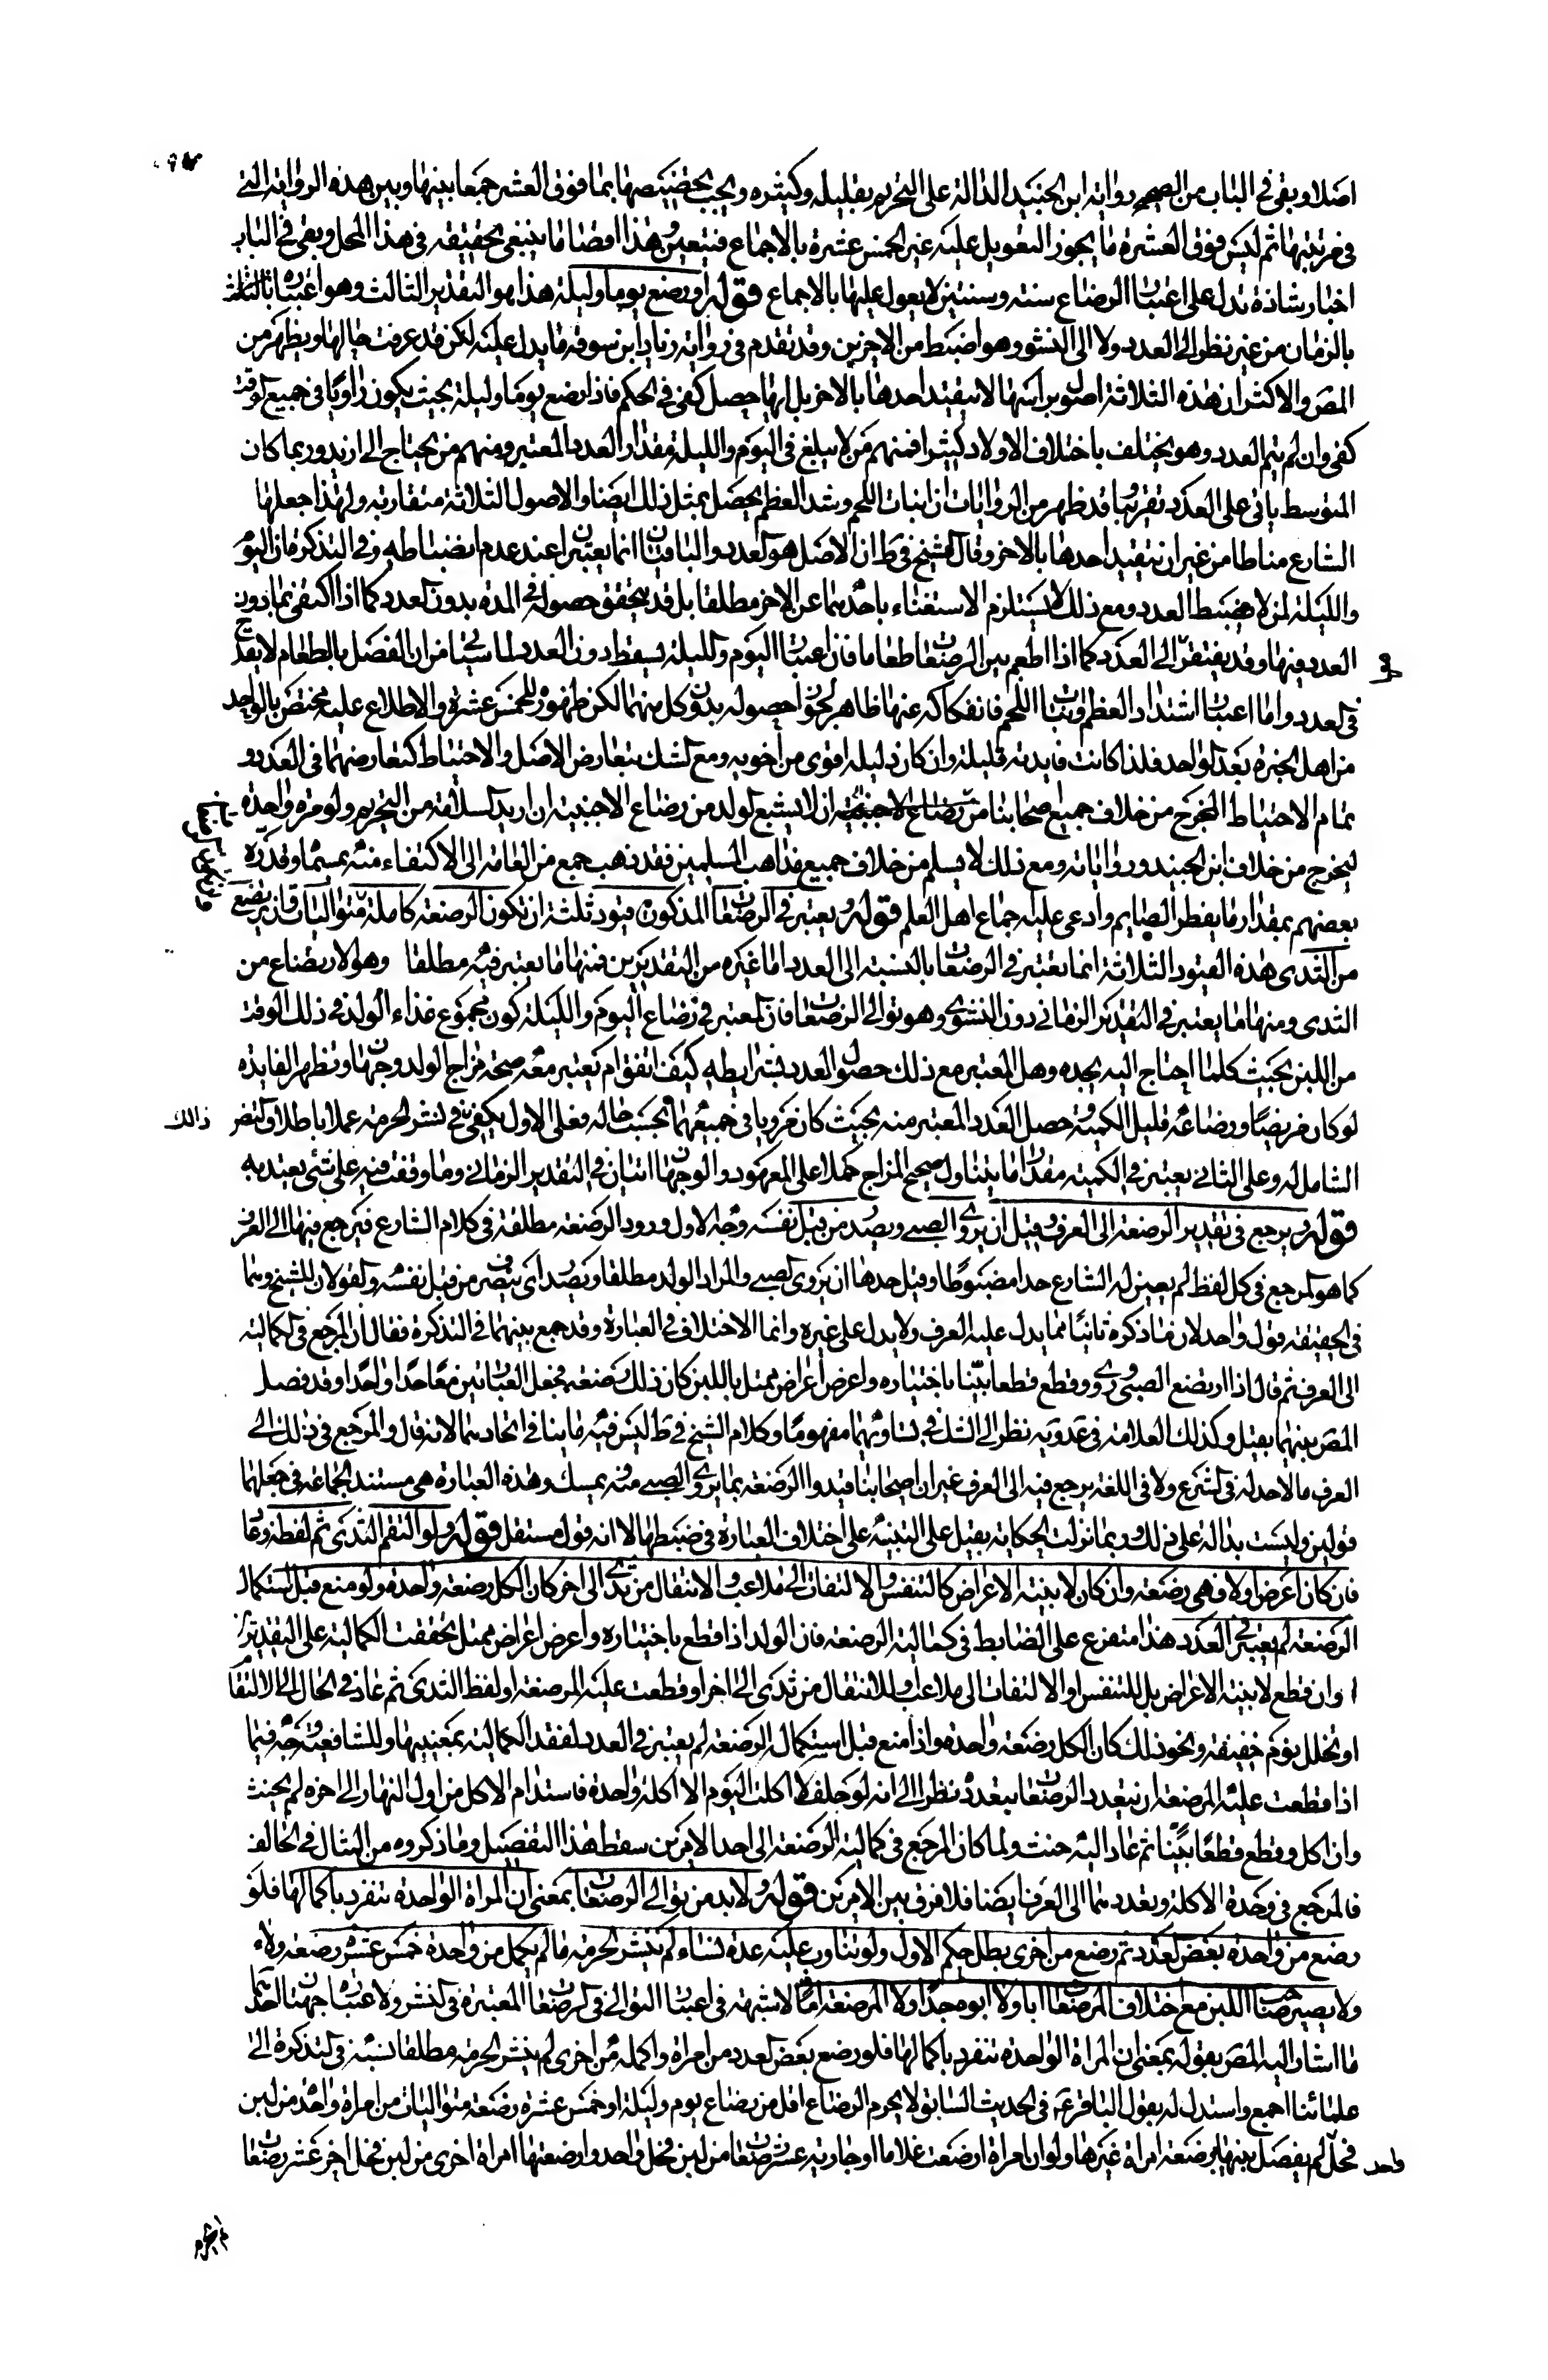 اصلا وبقى في الباب من الصحيح رواية ابن الجنيد الدالة على التحريم بقليله وكثيره ويجب تخصيصها بما فوق العشر جمعا بينها وبين هذه الرواية التي
في مرتبتها ثم ليس فوق العشرة ما يجوز التعويل عليه غير الخمس عشرة بالاجماع فتعين وهذا اقصا ما ينبغي تحقيقه في هذا المحل وبقى في الباب
اخبار شاذة تدل على اعتبار الرضاع سنة وسنتين لا يعول عليها بالاجماع قوله او رضع يوما وليلة هذا هو التقدير الثالث وهو اعتباره
بالزمان من غير نظر الى العدد ولا الى النشو وهو اضبط من الاخرين وقد تقدم في رواية زياد ابن سوقه ما يدل عليه لكن قد عرفت حالها ويظهر من
المص والاكثر ان هذه الثلاثة اصول براسها لا يتقيد احدها بالاخر بل ايها حصل كفى في الحكم فاذا رضع يوما وليلة بحيث يكون راويا في جميع الوقت
كفى وان لم يتم العدد وهو يختلف باختلاف الاولاد كثيرا فمنهم من لا يبلغ في اليوم والليلة مقدار العدد المعتبر ومنهم من يحتاج الى ازيد وربما كان
المتوسط ياتي على العدد تقريبا قد ظهر من الروايات ان انبات اللحم وشد العظم يحصل بمثل ذلك ايضا والاصول الثلاثة متقاربة ولهذا جعلها
الشارع مناطا من غير ان يتقيد احدها بالاخر وقال الشيخ في ط ان الاصل هو العدد والباقيان انما يعتبران عند عدم انضباطه وفي التذكرة ان اليوم
والليلة لمن لا يضبط العدد ومع ذلك لا يستلزم الاستغناء باحدهما عن الاخر مطلقا بل قد يتحقق حصوله في المدة بدون العدد كما اذا اكتفى بما دون
العدد فيها وقد يفتقر الى العدد كما اذا اطعم بين الرضعات طعاما فان اعتبار اليوم والليلة يسقط دون العدد لما سياتي من ان الفصل بالطعام لا يقدح
في العدد واما اعتبار اشتداد العظم ونبات اللحم فانفكاكه عنها ظاهر لجواز حصوله بدون كل منهما لكن ظهوره للخمس عشرة والاطلاع عليه مختص بالواحد
من اهل الخبرة بعد الواحد فلذا كانت فايدته قليلة وان كان دليله اقوى من اخويه ومع الشك يتعارض الاصل والاحتياط كتعارضهما في العدد و
تمام الاحتياط المخرج من خلاف جميع اصحابنا ان لا يشبع الولد من رضاع الاجنبية ان اريد السلامة من التحريم ولو مرة واحدة
ليخرج من خلاف ابن الجنيد ورواياته ومع ذلك لا يسلم من خلاف جميع مذاهب المسلمين فقد ذهب جمع من العامة الى الاكتفاء منه بمسماه وقدره
بعضهم بمقدار ما يفطر الصايم وادعى عليه اجماع اهل العلم قوله ويعتبر في الرضعات المذكورة قيود ثلثة ان تكون الرضعة كاملة متواليات وان يرتضع
من الثدى هذه القيود الثلاثة انما يعتبر في الرضعات بالنسبة الى العدد اما غيره من التقديرين فمنها ما يعتبر فيه مطلقا وهو الارتضاع من
الثدى ومنها ما يعتبر في التقدير الزماني دون النشوى وهو توالى الرضعات فان المعتبر في رضاع اليوم والليلة كون مجموع غذاء الولد في ذلك الوقت
من اللبن بحيث كلما احتاج اليه يجده وهل المعتبر مع ذلك حصول العدد بشرايطه كيف اتفق ام يعتبر معه صحة مزاج الولد وجهان وتظهر الفايدة
لو كان مريضا ورضاعه قليل الكمية وحصل العدد المعتبر منه بحيث كان مرويا في جميعها بحسب حاله فعلى الاول يكفى في نشر الحرمة عملا باطلاق النص
ذالك
الشامل له وعلى الثاني يعتبر في الكمية مقدار ما يتناول صحيح المزاج حملا على المعهود والوجهان اتيان في التقدير الزماني وما وقفت فيه على شئ يعتد به
قوله ويرجع في تقدير الرضعة الى العرف وقيل ان يروى الصبي ويصدر من قبل نفسه وجه الاول ورود الرضعة مطلقة في كلام الشارع فيرجع فيها الى العرف
كما هو المرجع في كل لفظ لم يعين له الشارع حدا مضبوطا وقيل حدها ان يروى الصبي والمراد الولد مطلقا ويصدر اى ينصرف من قبل نفسه والقولان للشيخ وهما
في الحقيقة قول واحد لان ما ذكره ثانيا مما يدل عليه العرف ولا يدل على غيره وانما الاختلاف في العبارة وقد جمع بينهما في التذكرة فقال ان المرجع في الكمالية
الى العرف ثم قال اذا ارتضع الصبي وروى وقطع قطعا بينا باختياره واعرض اعراض ممتلى باللبن كان ذلك رضعة فجعل العبارتين معا حدا واحدا وقد فصل
المص بينهما بقيل وكذلك العلامة في عدويه نظرا الى الشك في تساويهما مفهوما وكلام الشيخ في ط ليس فيه ما ينافي اتحادهما لانه قال والمرجع في ذلك الى
العرف ما لا حد له في الشرع ولا في اللغة يرجع فيه الى العرف غير ان اصحابنا قيدوا الرضعة بما يروى الصبي منه ويمسك وهذه العبارة هي مستند الجماعة في جعلهما
قولين وليست بدالة على ذلك وربما نزلت الحكاية بقيل على التنبيه على اختلاف العبارة في ضبطها لا انه قول مستقل قوله ولو التقم الثدى ثم لفظه وعاد
فان كان اعرض اولا فهي رضعة وان كان لا بنية الاعراض كالتنفس والالتفات الى ملاعب والانتقال من ثدى الى اخر كان الكل رضعة واحدة ولو منع قبل استكمال
الرضعة لم يعتبر في العدد هذا متفرع على الضابط في كمالية الرضعة فان الولد اذا قطع باختياره واعرض اعراض ممتلى تحققت الكمالية على التقديرين
وان قطع لا بنية الاعراض بل للتنفس او الالتفات الى ملاعب وللانتقال من ثدى الى اخر او قطعت عليه المرضعة او لفظ الثدى ثم عاد في الحال الى الالتقام
او تخلل نوم خفيفة ونحو ذلك كان الكل رضعة واحدة واذا منع قبل استكمال الرضعة لم يعتبر في العدد لفقد الكمالية بمعنييها وللشافعية وجه فيما
اذا قطعت عليه المرضعة ان يتعدد الرضعات بتعدده نظرا الى انه لو حلف لا اكلت اليوم الا اكلة واحدة فاستدام الاكل من اول النهار الى اخره لم يحنث
وان اكل وقطع قطعا بينا ثم عاد اليه حنث ولما كان المرجع في كمالية الرضعة الى احد الامرين سقط هذا التفصيل وما ذكروه من المثال في الحالف
فالمرجع في وحدة الاكلة وتعددها الى العرف ايضا فلا فرق بين الامرين قوله ولا بد من توالى الرضعات بمعنى ان المراة الواحدة تنفرد باكمالها فلو
رضع من واحدة بعض العدد ثم رضع من اخرى بطل حكم الاول ولو تناوب عليه عدة نساء لم ينشر الحرمة ما لم يكمل من واحدة خمس عشر رضعة ولاء
ولا يصير صاحب اللبن مع اختلاف المرضعات ابا ولا ابوه جدا ولا المرضعة اما لا شبهة في اعتبار التوالى في الرضعات المعتبرة في النشر ولاعتباره جهتان احدهما
ما اشار اليه المص بقوله بمعنى ان المراة الواحدة تنفرد باكمالها فلو رضع بعض العدد من امراة واكمله من اخرى لم ينشر الحرمة مطلقا نسبه في التذكرة الى
علمائنا اجمع واستدل له بقول الباقر ع في الحديث السابق لا يحرم الرضاع اقل من رضاع يوم وليلة او خمس عشرة رضعة متواليات من امراة واحدة من لبن
فحل لم يفصل بينها برضعة امراة غيرها ولو ان امراة ارضعت غلاما او جارية عشر رضعات من لبن فحل واحد وارضعتها امراة اخرى من لبن فحل اخر عشر رضعات
واحد